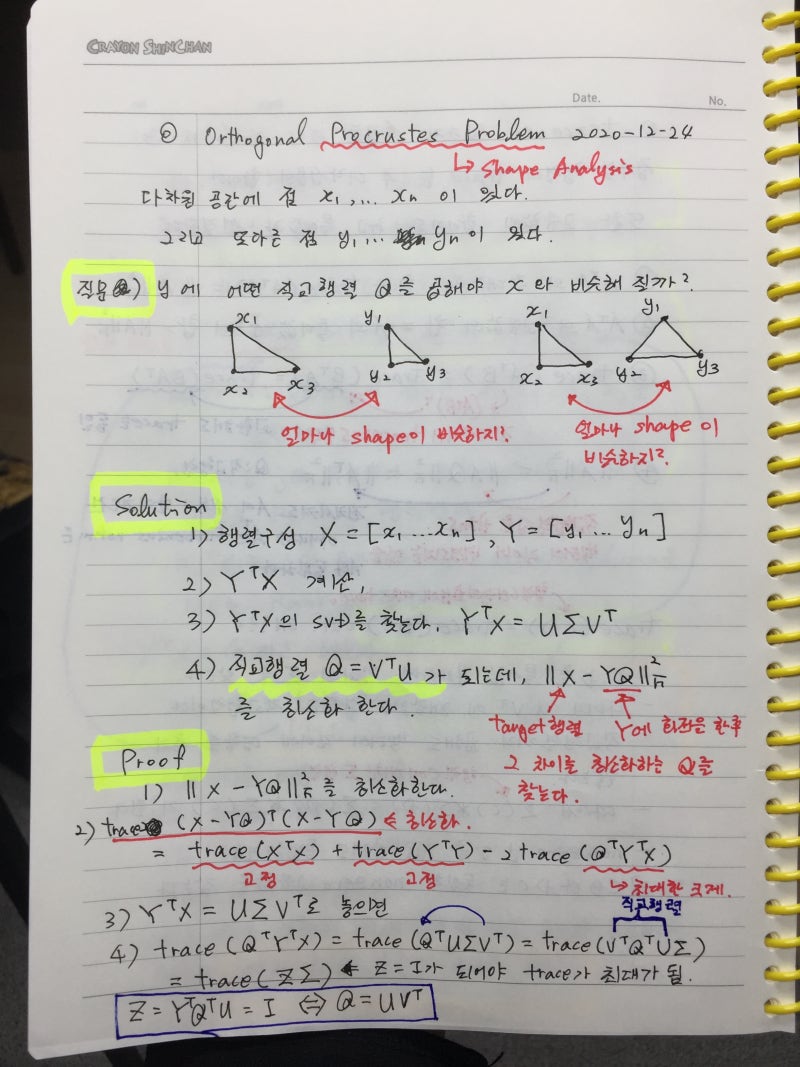 CRAYON SHINCHAN
Date. No.
◎ Orthogonal Procrustes Problem 2020-12-24
↳ Shape Analysis
다차원 공간에 점 x₁,... xₙ 이 있다.
그리고 또다른 점 y₁,... yₙ이 있다.
질문) y에 어떤 직교행렬 Q를 곱해야 x와 비슷해 질까?
x₁ y₁ x₁ y₁
x₂ x₃ y₂ y₃ x₂ x₃ y₂ y₃
얼마나 shape이 비슷하지? 얼마나 shape이
비슷하지?
Solution
1) 행렬구성 X = [x₁ ... xₙ], Y = [y₁ ... yₙ]
2) YᵀX 계산,
3) YᵀX의 SVD를 찾는다. YᵀX = UΣVᵀ
4) 직교행렬 Q = VᵀU가 되는데, ||X - YQ||²_F
를 최소화 한다.
target행렬 Y에 회전을 한후
그 차이를 최소화하는 Q를
찾는다.
Proof
1) ||X - YQ||²_F를 최소화한다.
2) trace (X-YQ)ᵀ(X-YQ) ← 최소화.
= trace(XᵀX) + trace(YᵀY) - 2 trace(QᵀYᵀX)
고정 고정 ↳ 최대한 크게.
3) YᵀX = UΣVᵀ로 놓으면
직교행렬
4) trace(QᵀYᵀX) = trace(QᵀUΣVᵀ) = trace(VᵀQᵀUΣ)
= trace(ZΣ) ← Z=I가 되어야 trace가 최대가 됨.
Z = YᵀQᵀU = I ⇔ Q = UVᵀ